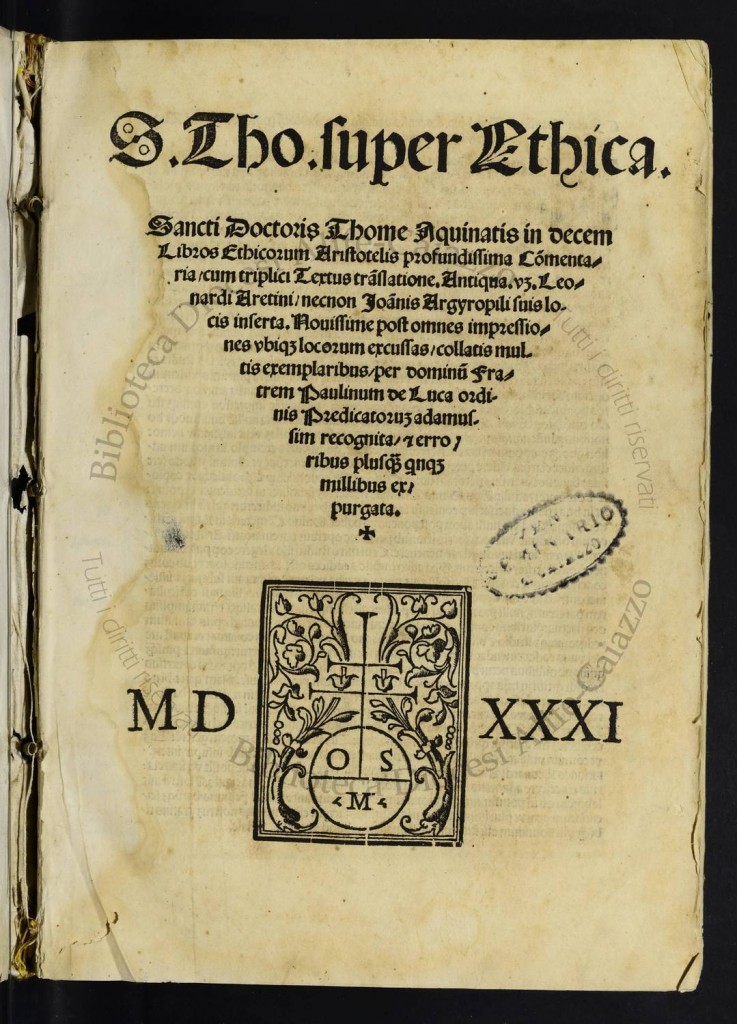 S. Tho. super Ethica.
Sancti Doctoris Thome Aquinatis in decem
Libros Ethicorum Aristotelis profundissima Cõmenta-
ria/cum triplici Textus trãslatione. Antiqua. vꝫ. Leo-
nardi Aretini/necnon Joãnis Argyropili suis lo-
cis inserta. Nouissime post omnes impressio-
nes vbiqꝫ locorum excussas/collatis mul-
tis exemplaribus/per dominũ Fra-
trem Paulinum de Luca ordi-
nis Predicatoruꝫ adamus-
sim recognita/⁊ erro-
ribus plusqꝫ̃ qnqꝫ
millibus ex-
purgata.
✠
MD XXXI
O S
M
SEMINARIO
Biblioteca Diocesi Alife-Caiazzo
Tutti i diritti riservati
Tutti i diritti riservati
Biblioteca Diocesi Alife-Caiazzo